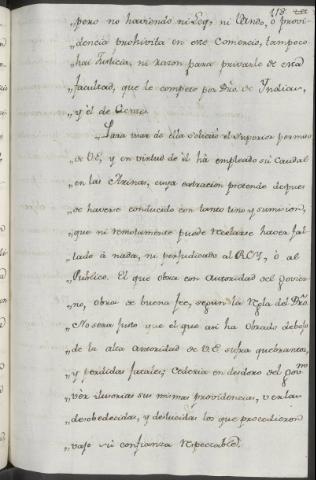 118
„pero no haviendo ni Ley, ni Vando, ó provi-
„dencia prohivita en este Comercio, tampoco
„hai Justicia, ni razon para privarle de esta
„facultad, que le compete por Dro. de Indias,
„y él de Gentes.
„Para usar de ella solicitó el superior permiso
„de V.E, y en virtud de él há empleado sú Caudal
„en las Arinas, cuya extraccion pretende despues
„de haverse conducido con tanto tino y sumision,
„que ni remotamente puede recelarse haver fal-
„tado á nada, ni perjudicado al REY, ó al
„Público. El que obra con Autoridad del govier-
„no, obra de buena fee, segun la regla del Dro.
„No sera justo que el que asi ha obrado debajo
„de la alta autoridad de V.E sufra quebrantos,
„y perdidas fatales; Cederia en desdoro del govno.
„vér ilusorias sus mismas providencias, verlas
„desobedecidas, y deslucidos los que procedieron
„vajo sú confianza respectable.